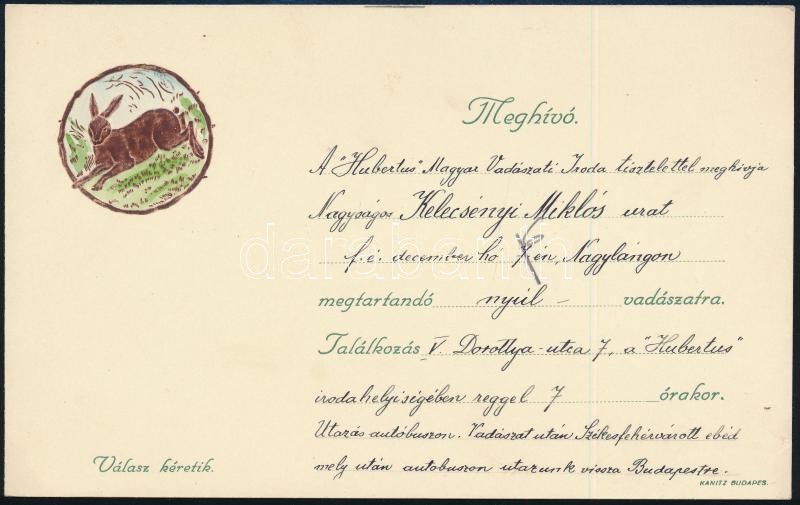 Meghívó.
A "Hubertus" Magyar Vadászati Iroda tisztelettel meghívja
Nagyságos Kelecsényi Miklós urat
f. é. december hó 7-én, Nagylángon
megtartandó nyúl - vadászatra.
Találkozás V. Dorottya-utca 7, a "Hubertus"
irodahelyiségében reggel 7 órakor.
Utazás autóbuszon. Vadászat után Székesfehérvárott ebéd
mely után autobuszon utazunk vissza Budapestre.
Válasz kéretik.
KANITZ BUDAPES.